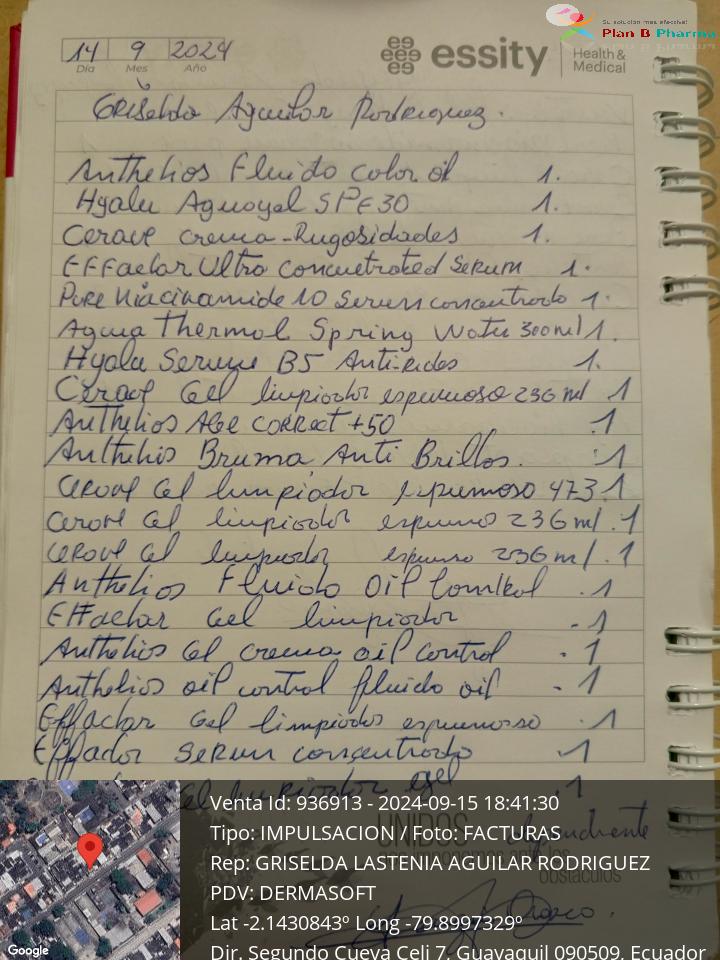 Su solución más efectiva!
Plan B Pharma
14 9 2024
Día Mes Año
essity
Health & Medical
Griselda Aguilar Rodriguez.
Anthelios Fluido color oil 1.
Hyalu Aguagel SPF30 1.
Cerave crema-Rugosidades 1.
EFFaclar Ultra Concuetrated Serum 1.
Pure Niacinamide 10 Serum concentrado 1.
Agua Thermal Spring Water 300ml 1.
Hyalu Serum B5 Anti-rides 1.
Cerave Gel limpiador espumoso 236 ml 1
Anthelios AGE CORRect +50 .1
Anthelios Bruma Anti Brillos. 1
Cerave Gel limpiador espumoso 473.1
Cerave Gel limpiador espumo 236 ml .1
Cerave Gel limpiador espumo 236 ml .1
Anthelios Fluido Oil Control .1
Effaclar Gel limpiador -1
Anthelios Gel crema oil control .1
Anthelios oil control fluido oil - 1
Effaclar Gel limpiador espumoso .1
Effaclar Serum concentrado .1
Gel limpiador .1
UNIDOS
obstáculos
Venta Id: 936913 - 2024-09-15 18:41:30
Tipo: IMPULSACION / Foto: FACTURAS
Rep: GRISELDA LASTENIA AGUILAR RODRIGUEZ
PDV: DERMASOFT
Lat -2.1430843º Long -79.8997329º
Dir. Segundo Cueva Celi 7, Guayaquil 090509, Ecuador
Google